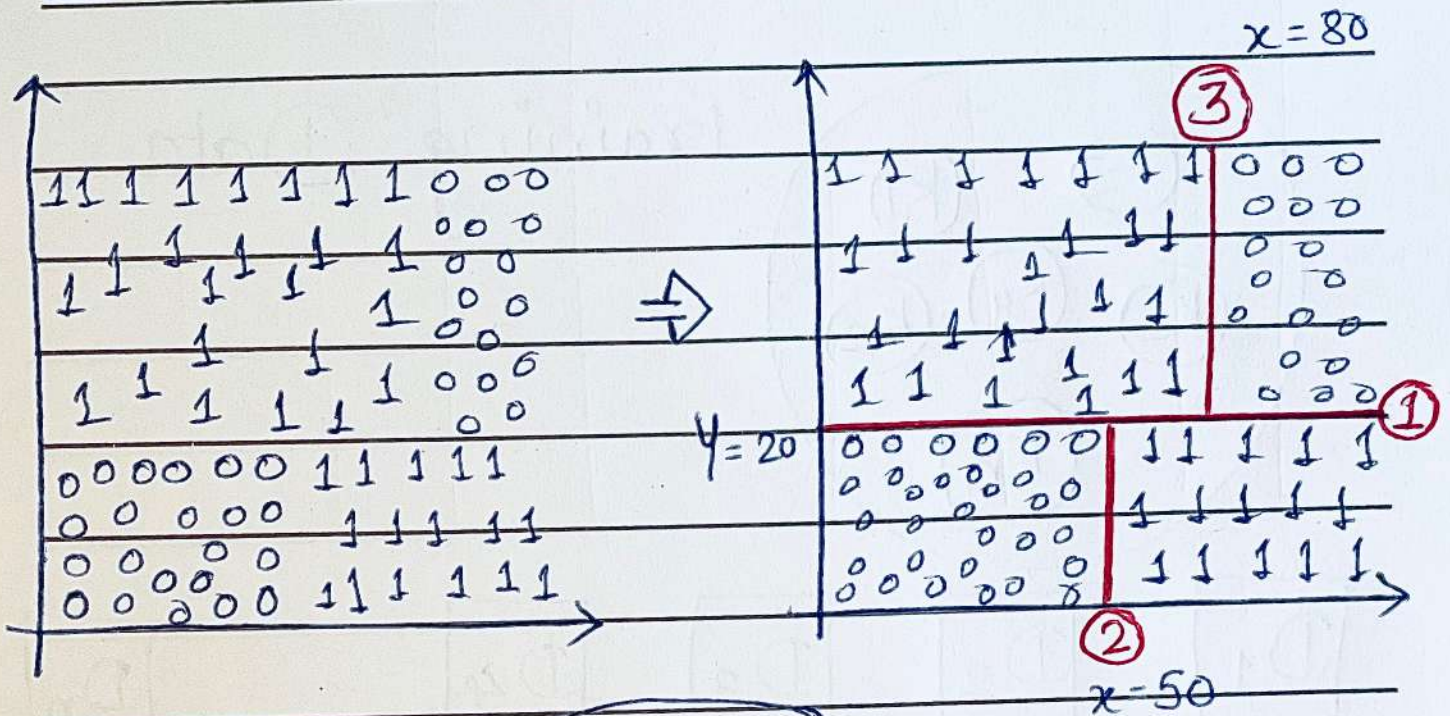 x = 80
3
1 1 1 1 1 1 1 1 0 0 0
0 0 0
1 1 1 1 1 1 0 0
1 1 1 1 0 0
0 0
1 1 1 0 0 0
1 1 1 1 1 0 0
0 0 0 0 0 0 1 1 1 1 1
0 0 0 0 0 1 1 1 1 1
0 0 0 0
0 0 0 0 0 0 0 1 1 1 1 1 1
⇒
1 1 1 1 1 1 1 0 0 0
0 0 0
1 1 1 1 1 1 0 0
1 0 0
1 1 1 1 1 1 0 0 0
1 0 0
1 1 1 1 1 1 0 0 0
1
y = 20
0 0 0 0 0 0 1 1 1 1 1
0 0 0 0 0 0 0 0 0
0 0 0 1 1 1 1 1
0 0 0
0 0 0 0 1 1 1 1 1
0 0 0 0 0 0
2
x = 50